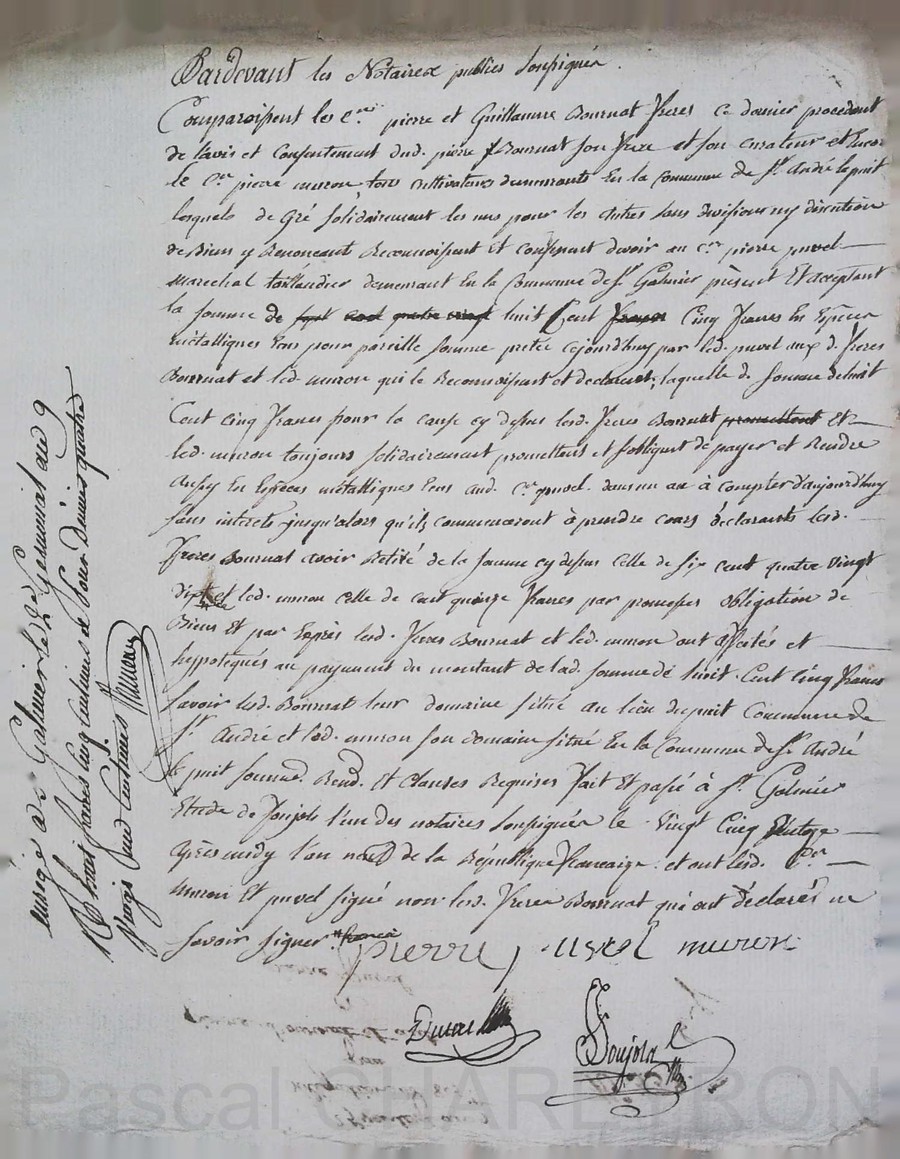 Pardevant les Notaires publics soussignés.
Comparoissent les C.ens pierre et Guillaume Bournat freres ce dernier procedant
de l'avis et Consentement dud. pierre Bournat son frere et son curateur et Encore
le C.en pierre muron, tous cultivateurs demeurants En la commune de S.t André le puit
lesquels de Gré solidairement les uns pour les autres sans division ny discution
de Biens y Renoncant Reconnoissent et Confessent devoir au C.en pierre puvel
marechal taillandier demeurant En la Commune de S.t Galmier present Et acceptant
la somme de sept cent quatre vingt huit Cent francs Cinq francs En Espèces
métalliques Eens pour pareille somme pretée cejourd'huy par led. puvel aux d. freres
Bournat et led. muron qui le Reconnoissent et declarent, laquelle d. somme de huit
Cent cinq francs pour la cause cy dessus lesd. freres Bournat promettent Et
led. muron toujours solidairement promettent et s'obligent de payer et Rendre
aussy En Espèces métalliques Eens aud. C.en puvel dans un an à compter d'aujourd'huy
sans interets jusqu'alors qu'ils commenceront à prendre cours déclarants lesd.
freres Bournat avoir Retiré de la somme cy dessus celle de six cent quatre vingt
dix et led. muron celle de cent quinze francs par promesses obligation de
Biens Et par Exprès lesd. freres Bournat et led. muron ont affectés et
hyppotequés au payement du montant de lad. somme de huit Cent Cinq francs
savoir lesd. Bournat leur domaine situé au lieu du puit Commune de
S.t André et led. muron son domaine situé En la Commune de S.t André
le puit soumd. Rend. Et Clauses Requises fait Et passé à S.t Galmier
Etude de Soujols l'un des notaires soussignés le vingt Cinq
après midy l'an neuf de la République francaize et ont lesd. C.en
muron Et puvel signé non lesd. freres Bournat qui ont déclarés ne
savoir signer
pierre puvel muron
Soujols
S.t Galmier le 27 Germinal an 9